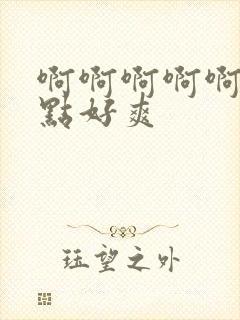 啊啊啊啊啊
點好爽
珏望之外